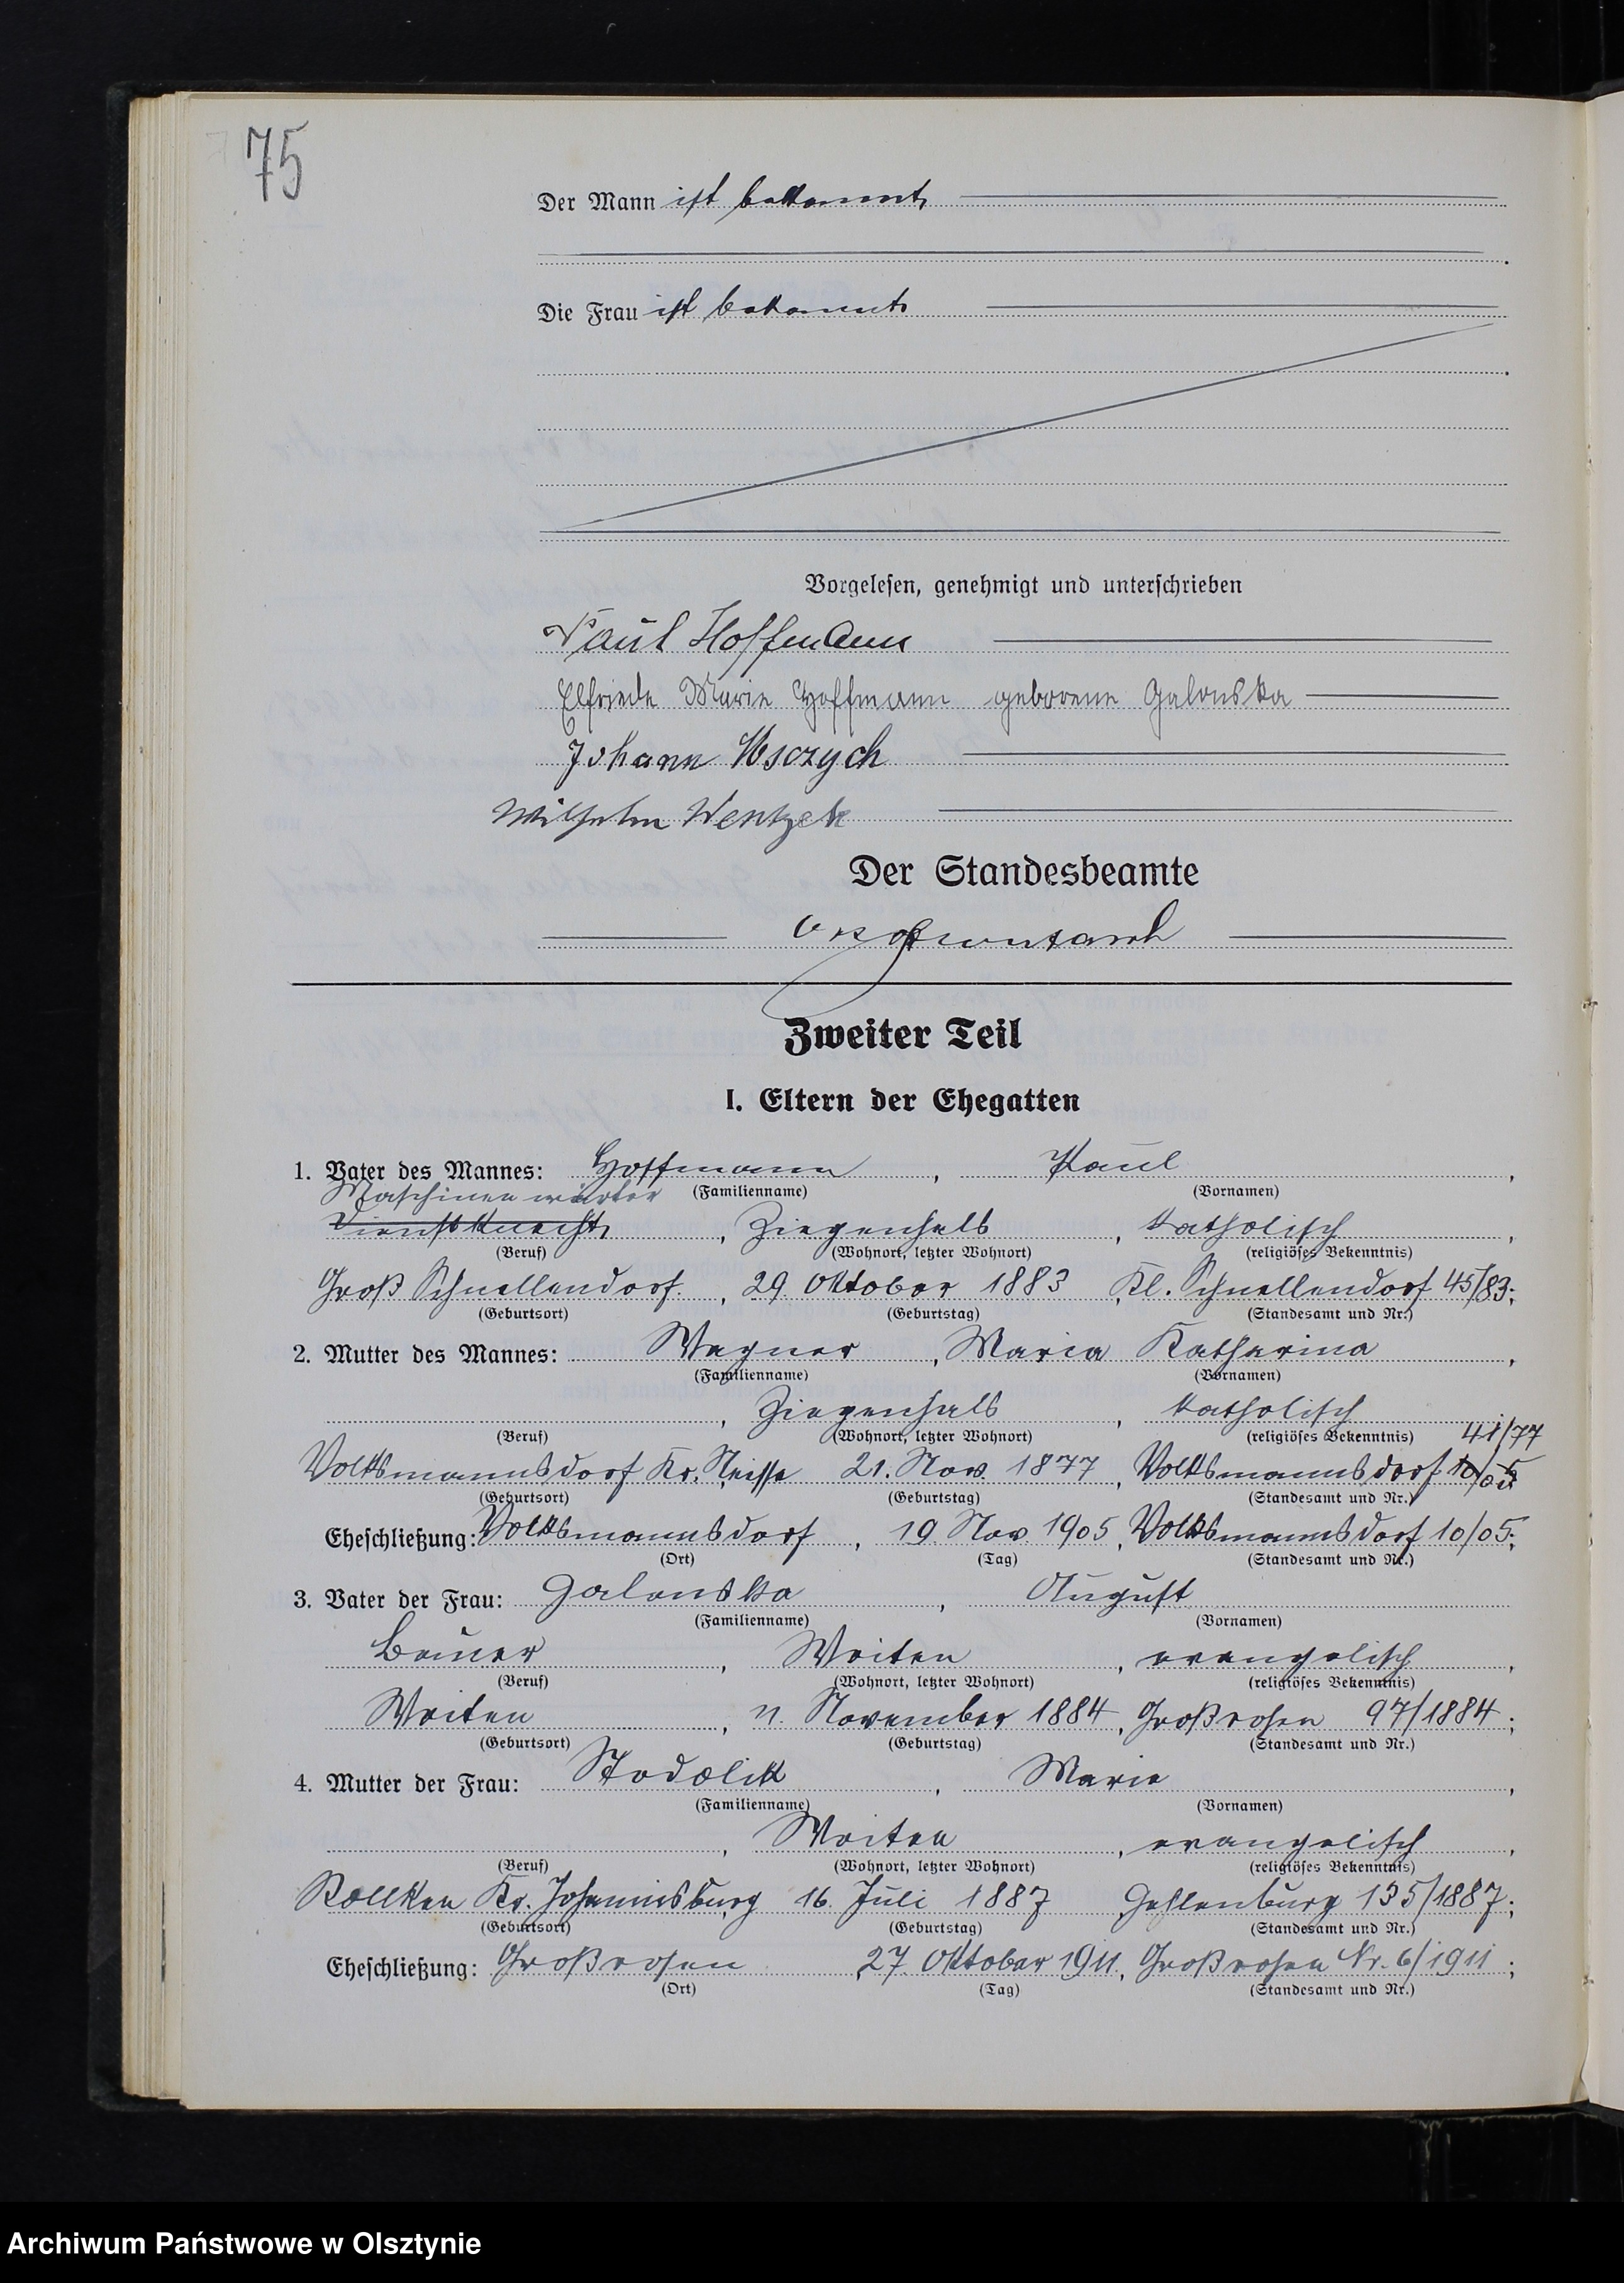 75
Der Mann ist bekannt
Die Frau ist bekannt
Vorgelesen, genehmigt und unterschrieben
Paul Hoffmann
Elfriede Marie Hoffmann geborene Galonska
Johann Wsczych
Wilhelm Wentzek
Der Standesbeamte
Zweiter Teil
I. Eltern der Ehegatten
1. Vater des Mannes: Hoffmann, Paul,
Maschinenwärter (Familienname) (Vornamen)
Dienstknecht, Ziegenhals, katholisch,
(Beruf) (Wohnort, letzter Wohnort) (religiöses Bekenntnis)
Groß Schnellendorf, 29. Oktober 1883, Kl. Schnellendorf 45/83;
(Geburtsort) (Geburtstag) (Standesamt und Nr.)
2. Mutter des Mannes: Wagner, Maria Katharina,
(Familienname) (Vornamen)
, Ziegenhals, katholisch
(Beruf) (Wohnort, letzter Wohnort) (religiöses Bekenntnis) 41/77
Volkmannsdorf Kr. Neisse, 21. Nov. 1877, Volkmannsdorf 10/05
(Geburtsort) (Geburtstag) (Standesamt und Nr.)
Eheschließung: Volkmannsdorf, 19. Nov. 1905, Volkmannsdorf 10/05;
(Ort) (Tag) (Standesamt und Nr.)
3. Vater der Frau: Galonska, August
(Familienname) (Vornamen)
Bauer, Woiten, evangelisch,
(Beruf) (Wohnort, letzter Wohnort) (religiöses Bekenntnis)
Woiten, 11. November 1884, Großrosen 97/1884;
(Geburtsort) (Geburtstag) (Standesamt und Nr.)
4. Mutter der Frau: Stodolik, Marie,
(Familienname) (Vornamen)
, Woiten, evangelisch,
(Beruf) (Wohnort, letzter Wohnort) (religiöses Bekenntnis)
Kollken Kr. Johannisburg 16. Juli 1887 Gehlenburg 135/1887;
(Geburtsort) (Geburtstag) (Standesamt und Nr.)
Eheschließung: Großrosen, 27. Oktober 1911, Großrosen Nr. 6/1911;
(Ort) (Tag) (Standesamt und Nr.)
Archiwum Państwowe w Olsztynie